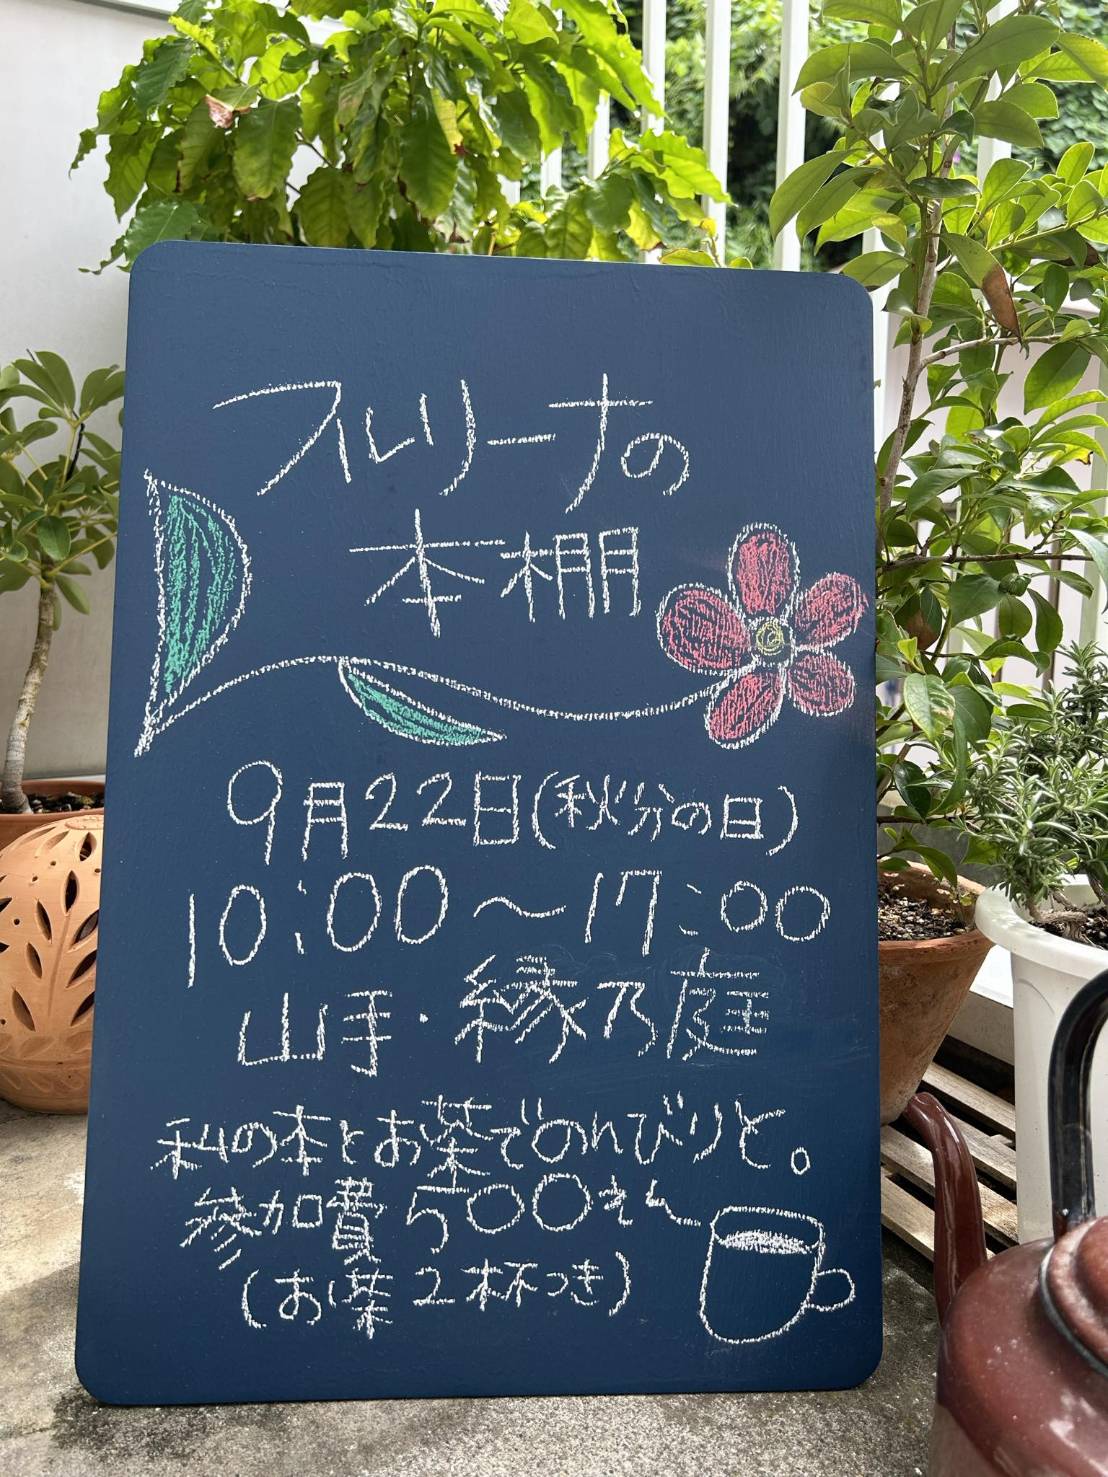 フルリーナの
本棚
9月22日(秋分の日)
10:00～17:00
山手・縁乃庭
私の本とお茶でのんびりと。
参加費500えん
(お茶2杯つき)